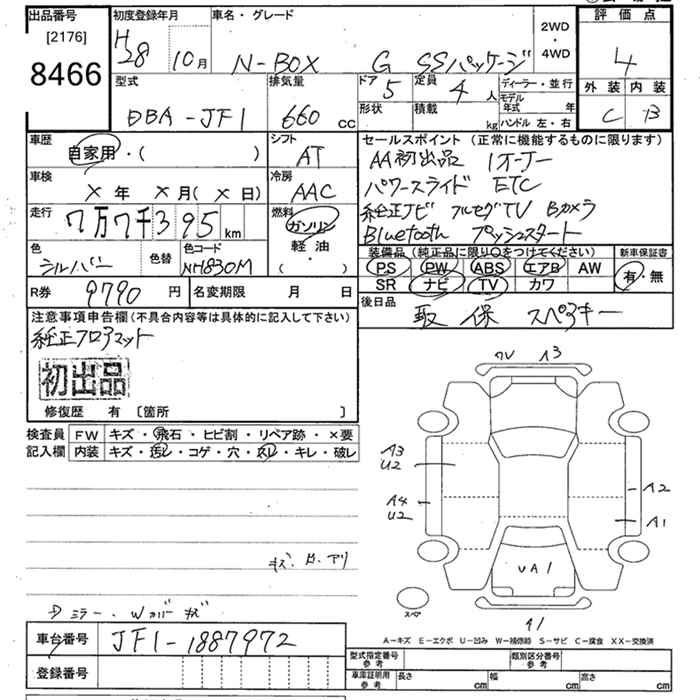 出品番号 初度登録年月 車名・グレード 2WD・4WD 評価点
[2176]
8466 H28 10月 N-BOX G SSパッケージ 4
型式 排気量 ドア 5 定員 4人 ディーラー・並行 外装 内装
DBA-JF1 660cc 形状 積載 kg モデル年式 年 C B
ハンドル 左・右
車歴 シフト セールスポイント (正常に機能するものに限ります)
自家用・( ) AT AA初出品 1オーナー
車検 冷房 パワースライド ETC
×年 ×月(×日) AAC 純正ナビ フルセグTV Bカメラ
走行 7万7千395km 燃料 ガソリン Bluetooth プッシュスタート
軽油・( )
色 シルバー 色替 色コード NH830M 装備品 (純正品に限り○をつけてください) 新車保証書
PS PW ABS エアB AW 有・無
SR ナビ TV カワ
R券 9790円 名変期限 月 日 後日品
取 保 スペアキー
注意事項申告欄(不具合内容等は具体的に記入して下さい)
純正フロアマット
初出品
修復歴 有 [箇所 ]
検査員 FW キズ・飛石・ヒビ割・リペア跡・×要
記入欄 内装 キズ・汚レ・コゲ・穴・スレ・キレ・破レ
A3
A3
U2
A4
U2
A2
A1
A1
スペア
A1
ミラー・Wカバーキズ
A―キズ E―エクボ U―凹み W―補修跡 S―サビ C―腐食 XX―交換済
車台番号 JF1-1887972
型式指定番号 参考 類別区分番号 参考
登録番号 車庫証明用 参考 長さ cm 幅 cm 高さ cm